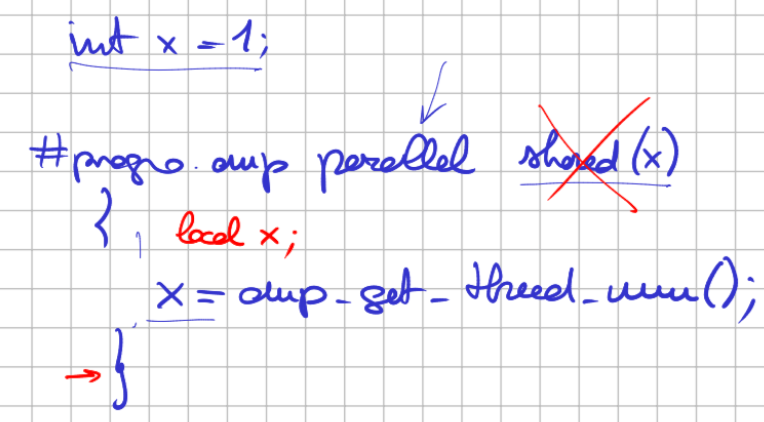 int x = 1;
#pragma omp parallel shared (x)
{ local x;
x = omp_get_thread_num();
}